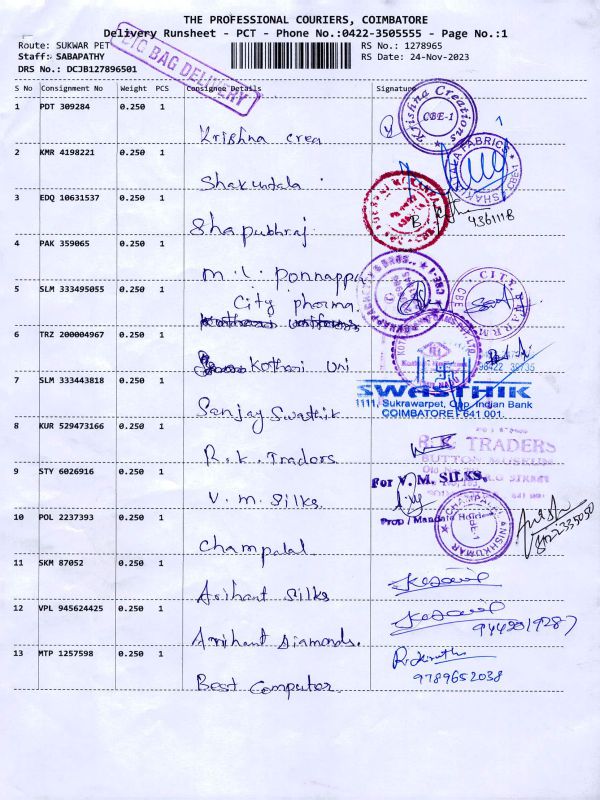 THE PROFESSIONAL COURIERS, COIMBATORE
Delivery Runsheet - PCT - Phone No.:0422-3505555 - Page No.:1
Route: SUKWAR PET
RS No.: 1278965
Staff: SABAPATHY
RS Date: 24-Nov-2023
DRS No.: DCJB127896501
BIG BAG DELIVERY
S No Consignment No Weight PCS Consignee Details Signature
1 PDT 309284 0.250 1
Krishna Crea
Krishna Creations CBE-1
2 KMR 4198221 0.250 1
Shakuntala
SHAKUNTALA FABRICS CBE-1
3 EDQ 10631537 0.250 1
Shapubhraj
4361118
4 PAK 359065 0.250 1
M. L. Ponnappa
5 SLM 333495055 0.250 1
City pharma
CITY PHARM CBE
6 TRZ 200004967 0.250 1
Kothari Uni
7 SLM 333443818 0.250 1
Sanjay Swasthik
SWASTHIK
1111, Sukrawarpet, Opp. Indian Bank
COIMBATORE - 641 001.
8 KUR 529473166 0.250 1
R. K. Traders
R.K. TRADERS
BUTTON MUSEUM
STREET
9 STY 6026916 0.250 1
V. M. Silks
For V. M. SILKS,
Prop / Mandate Holder
10 POL 2237393 0.250 1
Champalal
CHAMPALAL ANISHKUMAR CBE-1
11 SKM 87052 0.250 1
Arihant Silks
12 VPL 945624425 0.250 1
Arihant Diamonds.
9442019287
13 MTP 1257598 0.250 1
Best Computer
9789652038